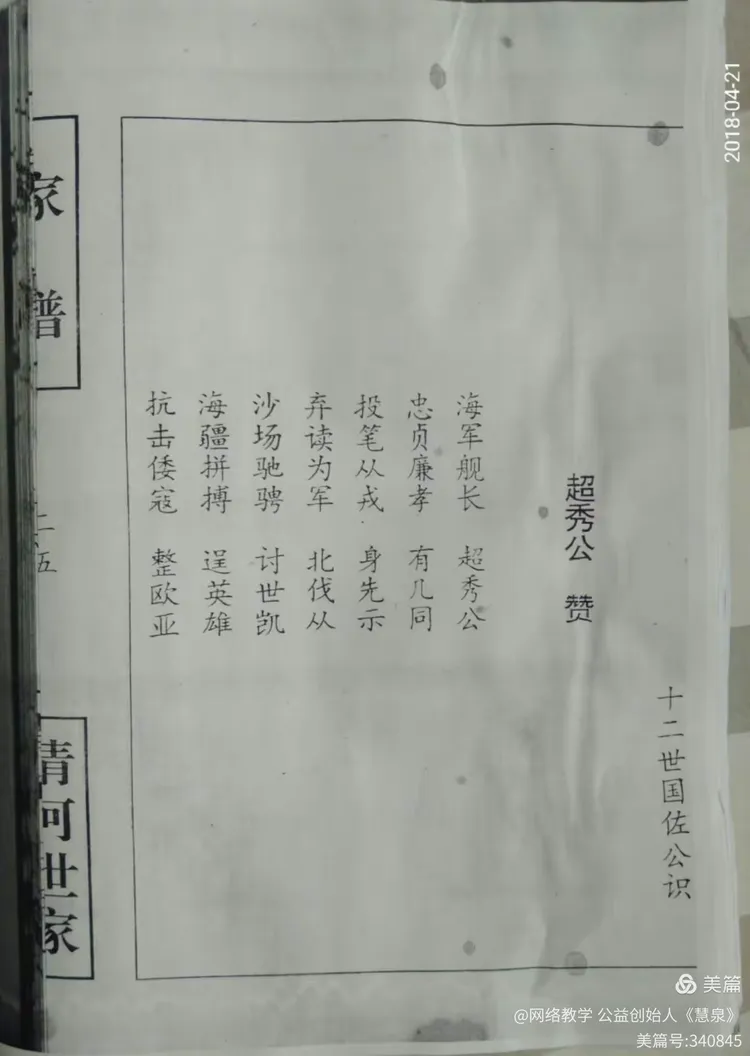 十二世国佐公识
超秀公 赞
海军舰长 超秀公
忠贞廉孝 有几同
投笔从戎 身先示
弃读为军 北伐从
沙场驰骋 讨世凯
海疆拼搏 逞英雄
抗击倭寇 整欧亚
家谱
二五
清河世家
2018-04-21
美篇
@网络教学 公益创始人《慧泉》
美篇号:340845